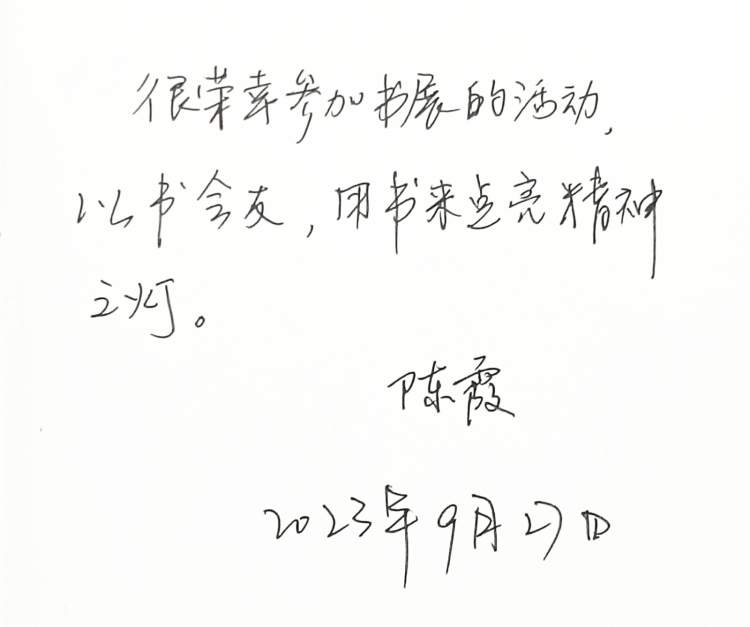 很荣幸参加书展的活动,
以书会友,用书来点亮精神
之灯。
陈霞
2023年9月27日